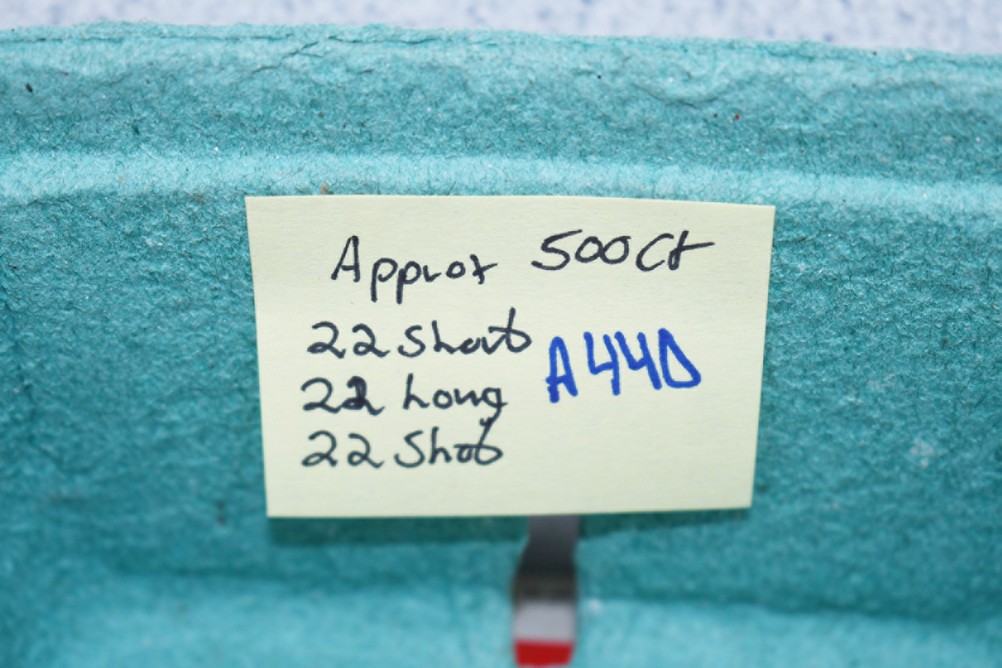 Approx 500Ct
22 Short
22 Long
22 Shot
A440